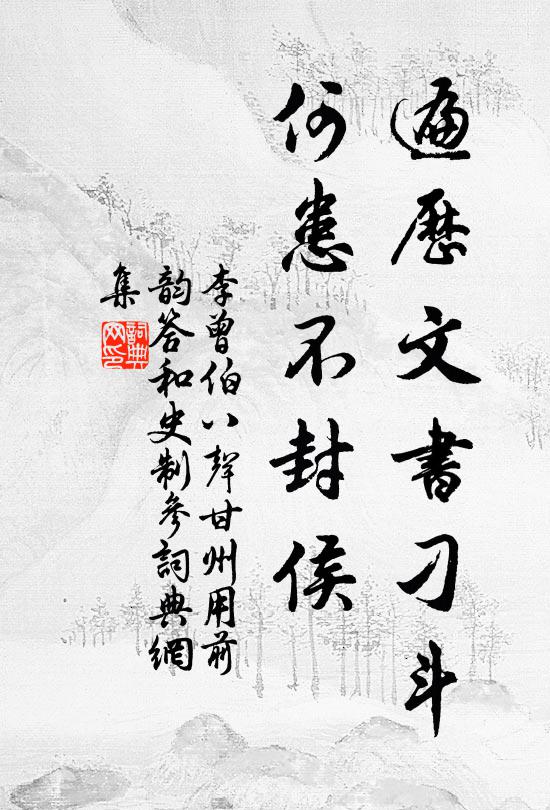 遍歷文書刁斗
何患不封侯
李曾伯八聲甘州用前
韵答和史制參詞典網
集
詞典网印